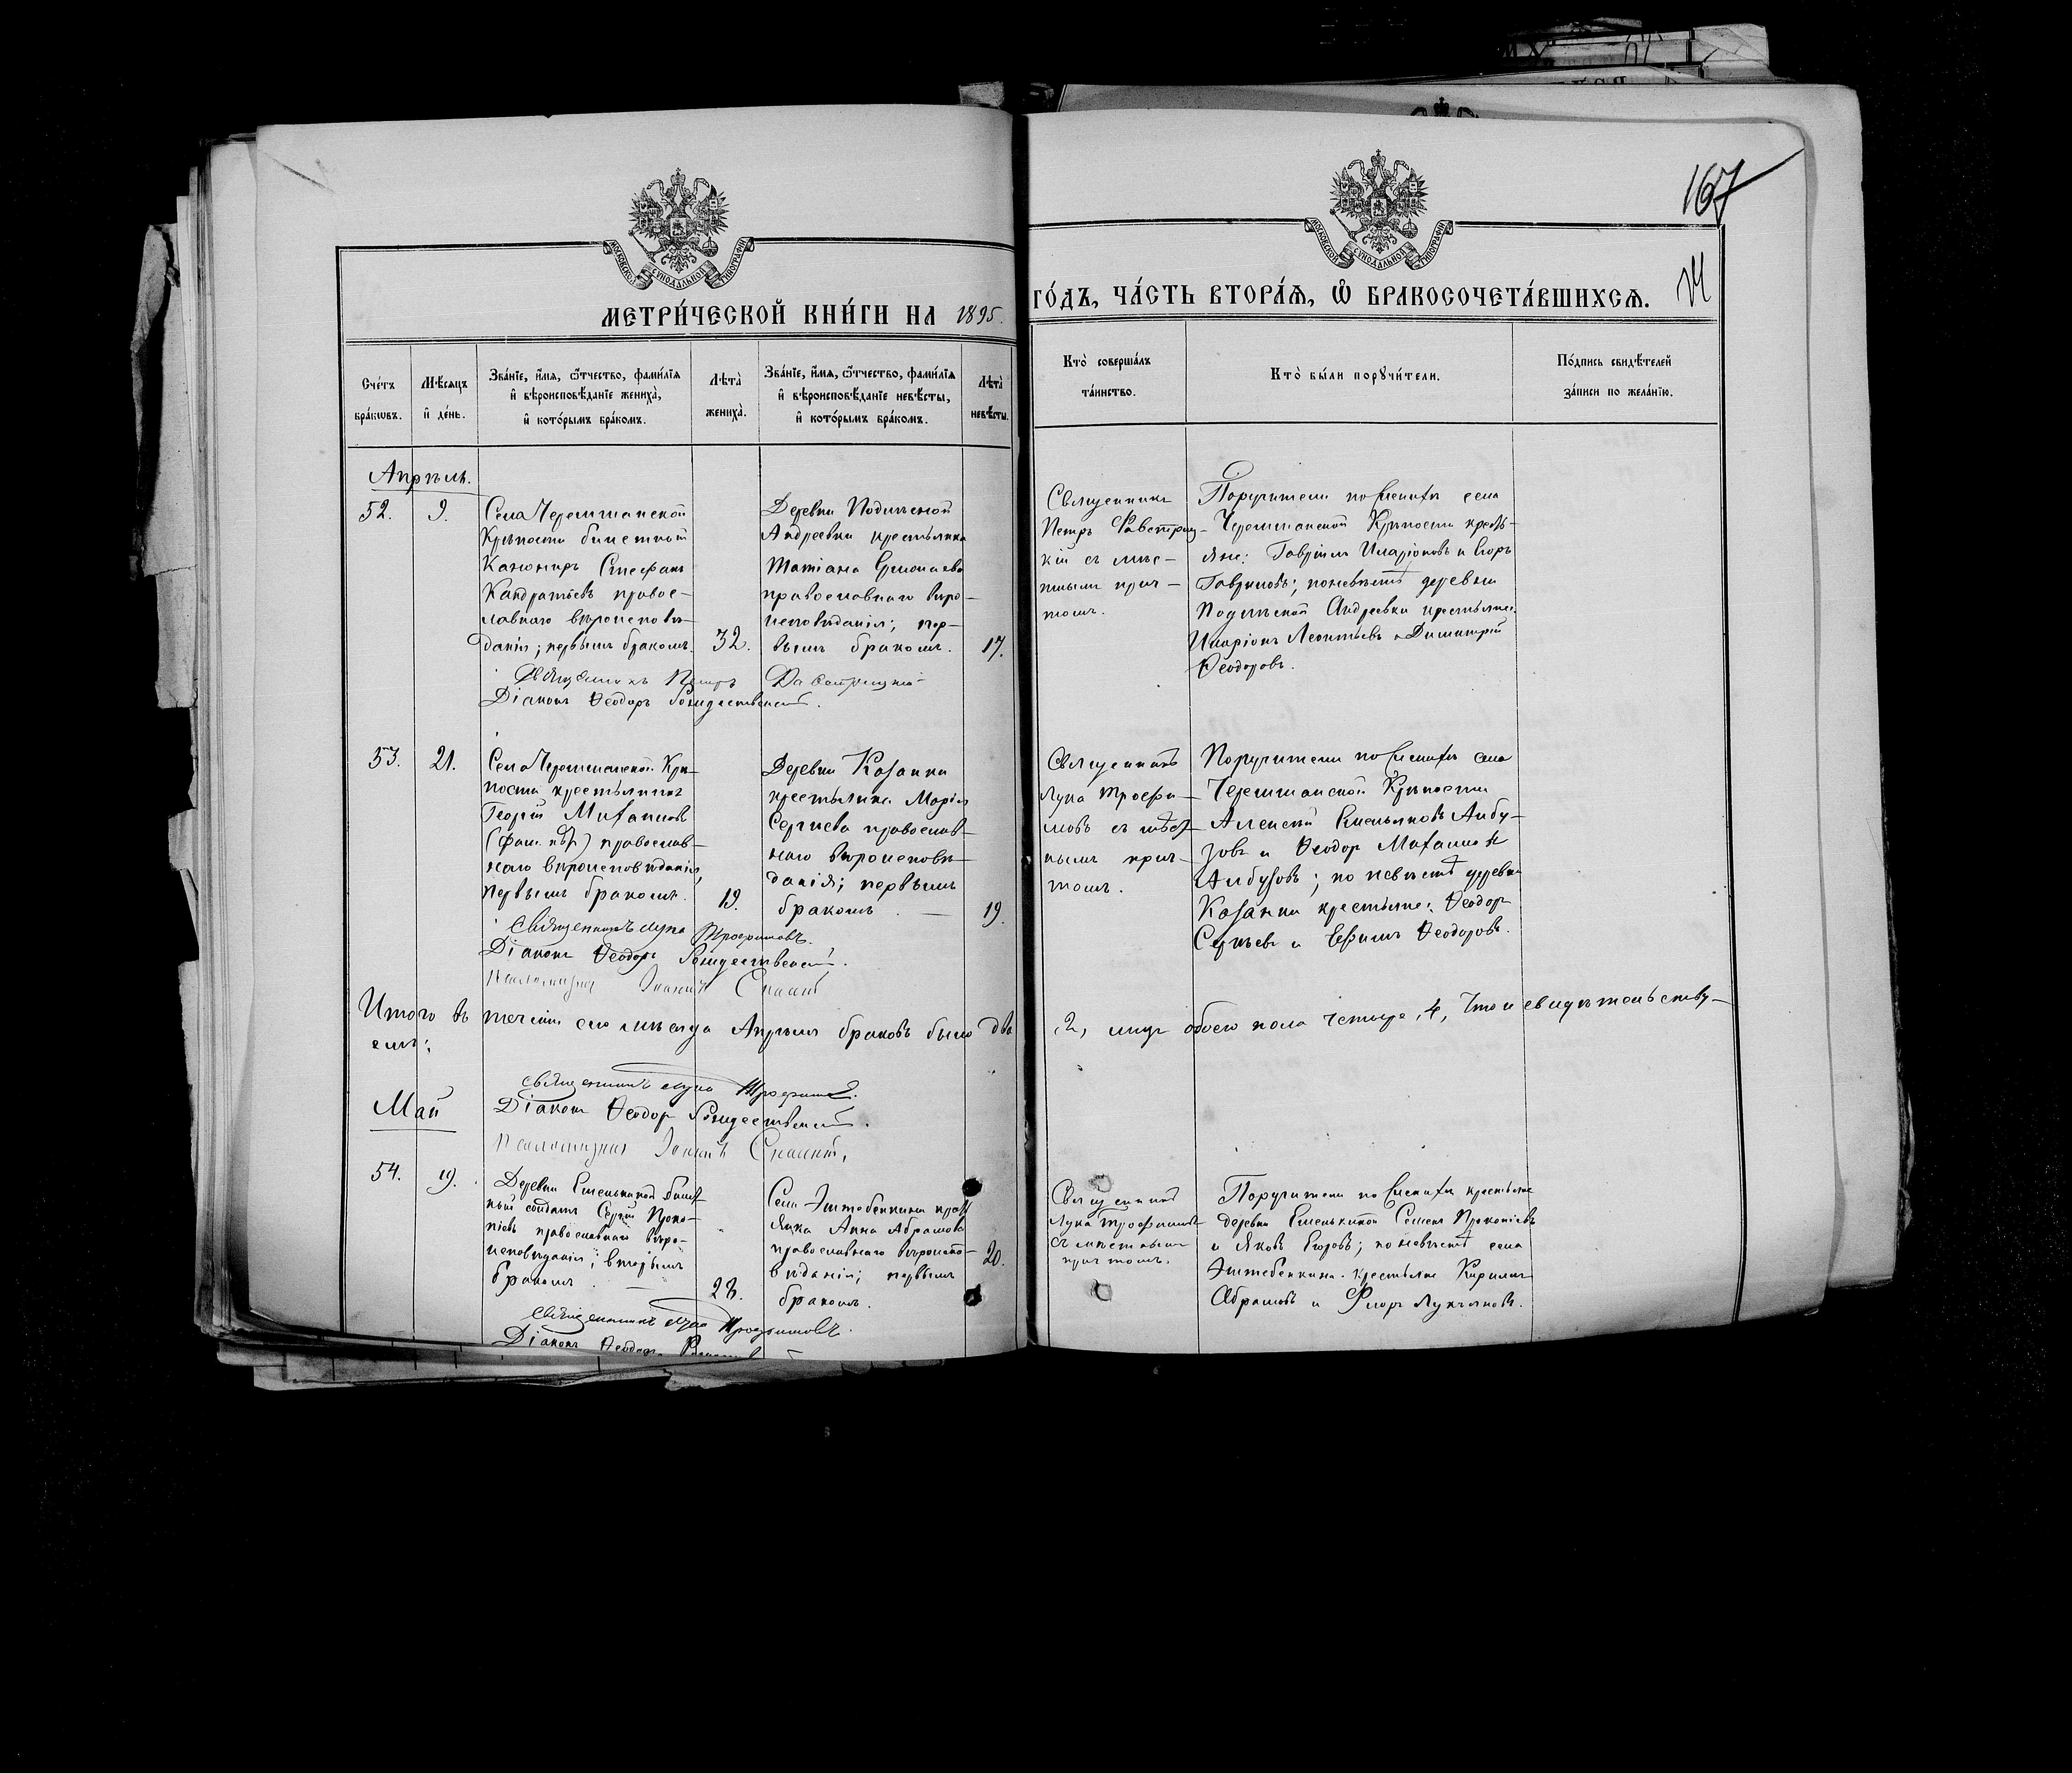 167
14
МЕТРИ́ЧЕСКОЙ КНИ́ГИ НА 1895.
ГО́ДЪ, ЧА́СТЬ ВТОРА́Ѧ, Ѽ БРАКОСОЧЕТА́ВШИХСѦ.
МОСКОВСКОЙ СѴНОДАЛЬНОЙ ТИПОГРАФІИ
МОСКОВСКОЙ СѴНОДАЛЬНОЙ ТИПОГРАФІИ
Сче́тъ бра́кωвъ.
Мѣ́сяцъ и҆ де́нь.
Зва́нїе, и҆́мя, ѻ҆́тчество, фами́лїя
и҆ вѣроисповѣ́данїе жениха̀,
и҆ кото́рымъ бра́комъ.
Лѣта̀ жениха̀.
Зва́нїе, и҆́мя, ѻ҆́тчество, фами́лїя
и҆ вѣроисповѣ́данїе невѣ́сты,
и҆ кото́рымъ бра́комъ.
Лѣта̀ невѣ́сты.
Кто̀ соверша́лъ
та́инство.
Кто̀ бы́ли порꙋчи́тели.
По́дпись свидѣ́телей
за́писи по жела́нїю.
Апрѣль.
52.
9.
Села Черемшанской
Крѣпости билетный
Канониръ Стефанъ
Кандратьевъ правос-
лавнаго вѣроисповѣ-
данія; первымъ бракомъ.
32.
Деревни Подлѣсной
Андреевки крестьянка
Татіана Ермолаева
православнаго вѣро-
исповѣданія; пер-
вымъ бракомъ.
17.
Священникъ
Петръ Фавстриц-
кій съ мѣс-
тнымъ прич-
томъ.
Поручители по женихѣ села
Черемшанской Крѣпости кресть-
яне: Гавріилъ Иларіоновъ и Егоръ
Гавриловъ; по невѣстѣ деревни
Подлѣсной Андреевки крестьяне
Иларіонъ Леонтьевъ и Димитрій
Ѳеодоровъ.
Священникъ Петръ Фавстрицкій
Діаконъ Ѳеодоръ Рождественскій.
53.
21.
Села Черемшанской Крѣ-
пости крестьянинъ
Георгій Михаиловъ
(фам. нѣтъ) православ-
наго вѣроисповѣданія,
первымъ бракомъ.
19.
Деревни Казанки
крестьянка Марія
Сергиева православ-
наго вѣроисповѣ-
данія; первымъ
бракомъ.
19.
Священникъ
Лука Трофи-
мовъ съ мѣст-
нымъ прич-
томъ.
Поручители по женихѣ села
Черемшанской Крѣпости
Алексѣй Емельяновъ Албу-
зовъ и Ѳеодор Михаиловъ
Албузовъ; по невѣстѣ деревни
Казанки крестьяне: Ѳеодоръ
Сергѣевъ и Ефимъ Ѳеодоровъ.
Священникъ Лука Трофимовъ.
Діаконъ Ѳеодоръ Рождественскій.
Псаломщикъ
Итого въ теченіи сего мѣсяца Апрѣля браковъ было два
2, лицъ обоего пола четыре, 4, что и свидѣтельству-
емъ:
Священникъ Лука Трофимовъ.
Діаконъ Ѳеодоръ Рождественскій.
Псаломщикъ
Май
54.
19.
Деревни Емелькиной билет-
ный солдатъ Сергій Проко-
піевъ православнаго вѣро-
исповѣданія; вторымъ
бракомъ.
28.
Села Эштебенкина крест-
янка Анна Абрамова
православнаго вѣроиспо-
вѣданія; первымъ
бракомъ.
20.
Священникъ
Лука Трофимовъ
съ мѣстнымъ
причтомъ.
Поручители по женихѣ крестьяне
деревни Емелькиной Семенъ Прокопіевъ
и Яковъ Егоровъ; по невѣстѣ села
Эштебенкина крестьяне Кирилъ
Абрамовъ и Флоръ Лукъяновъ.
Священникъ Лука Трофимовъ.
Діаконъ Ѳеодоръ